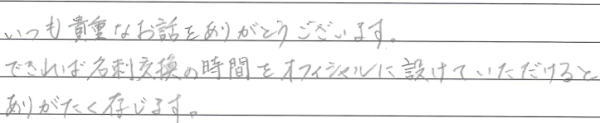 いつも貴重なお話をありがとうございます。
できれば名刺交換の時間をオフィシャルに設けていただけると
ありがたく存じます。